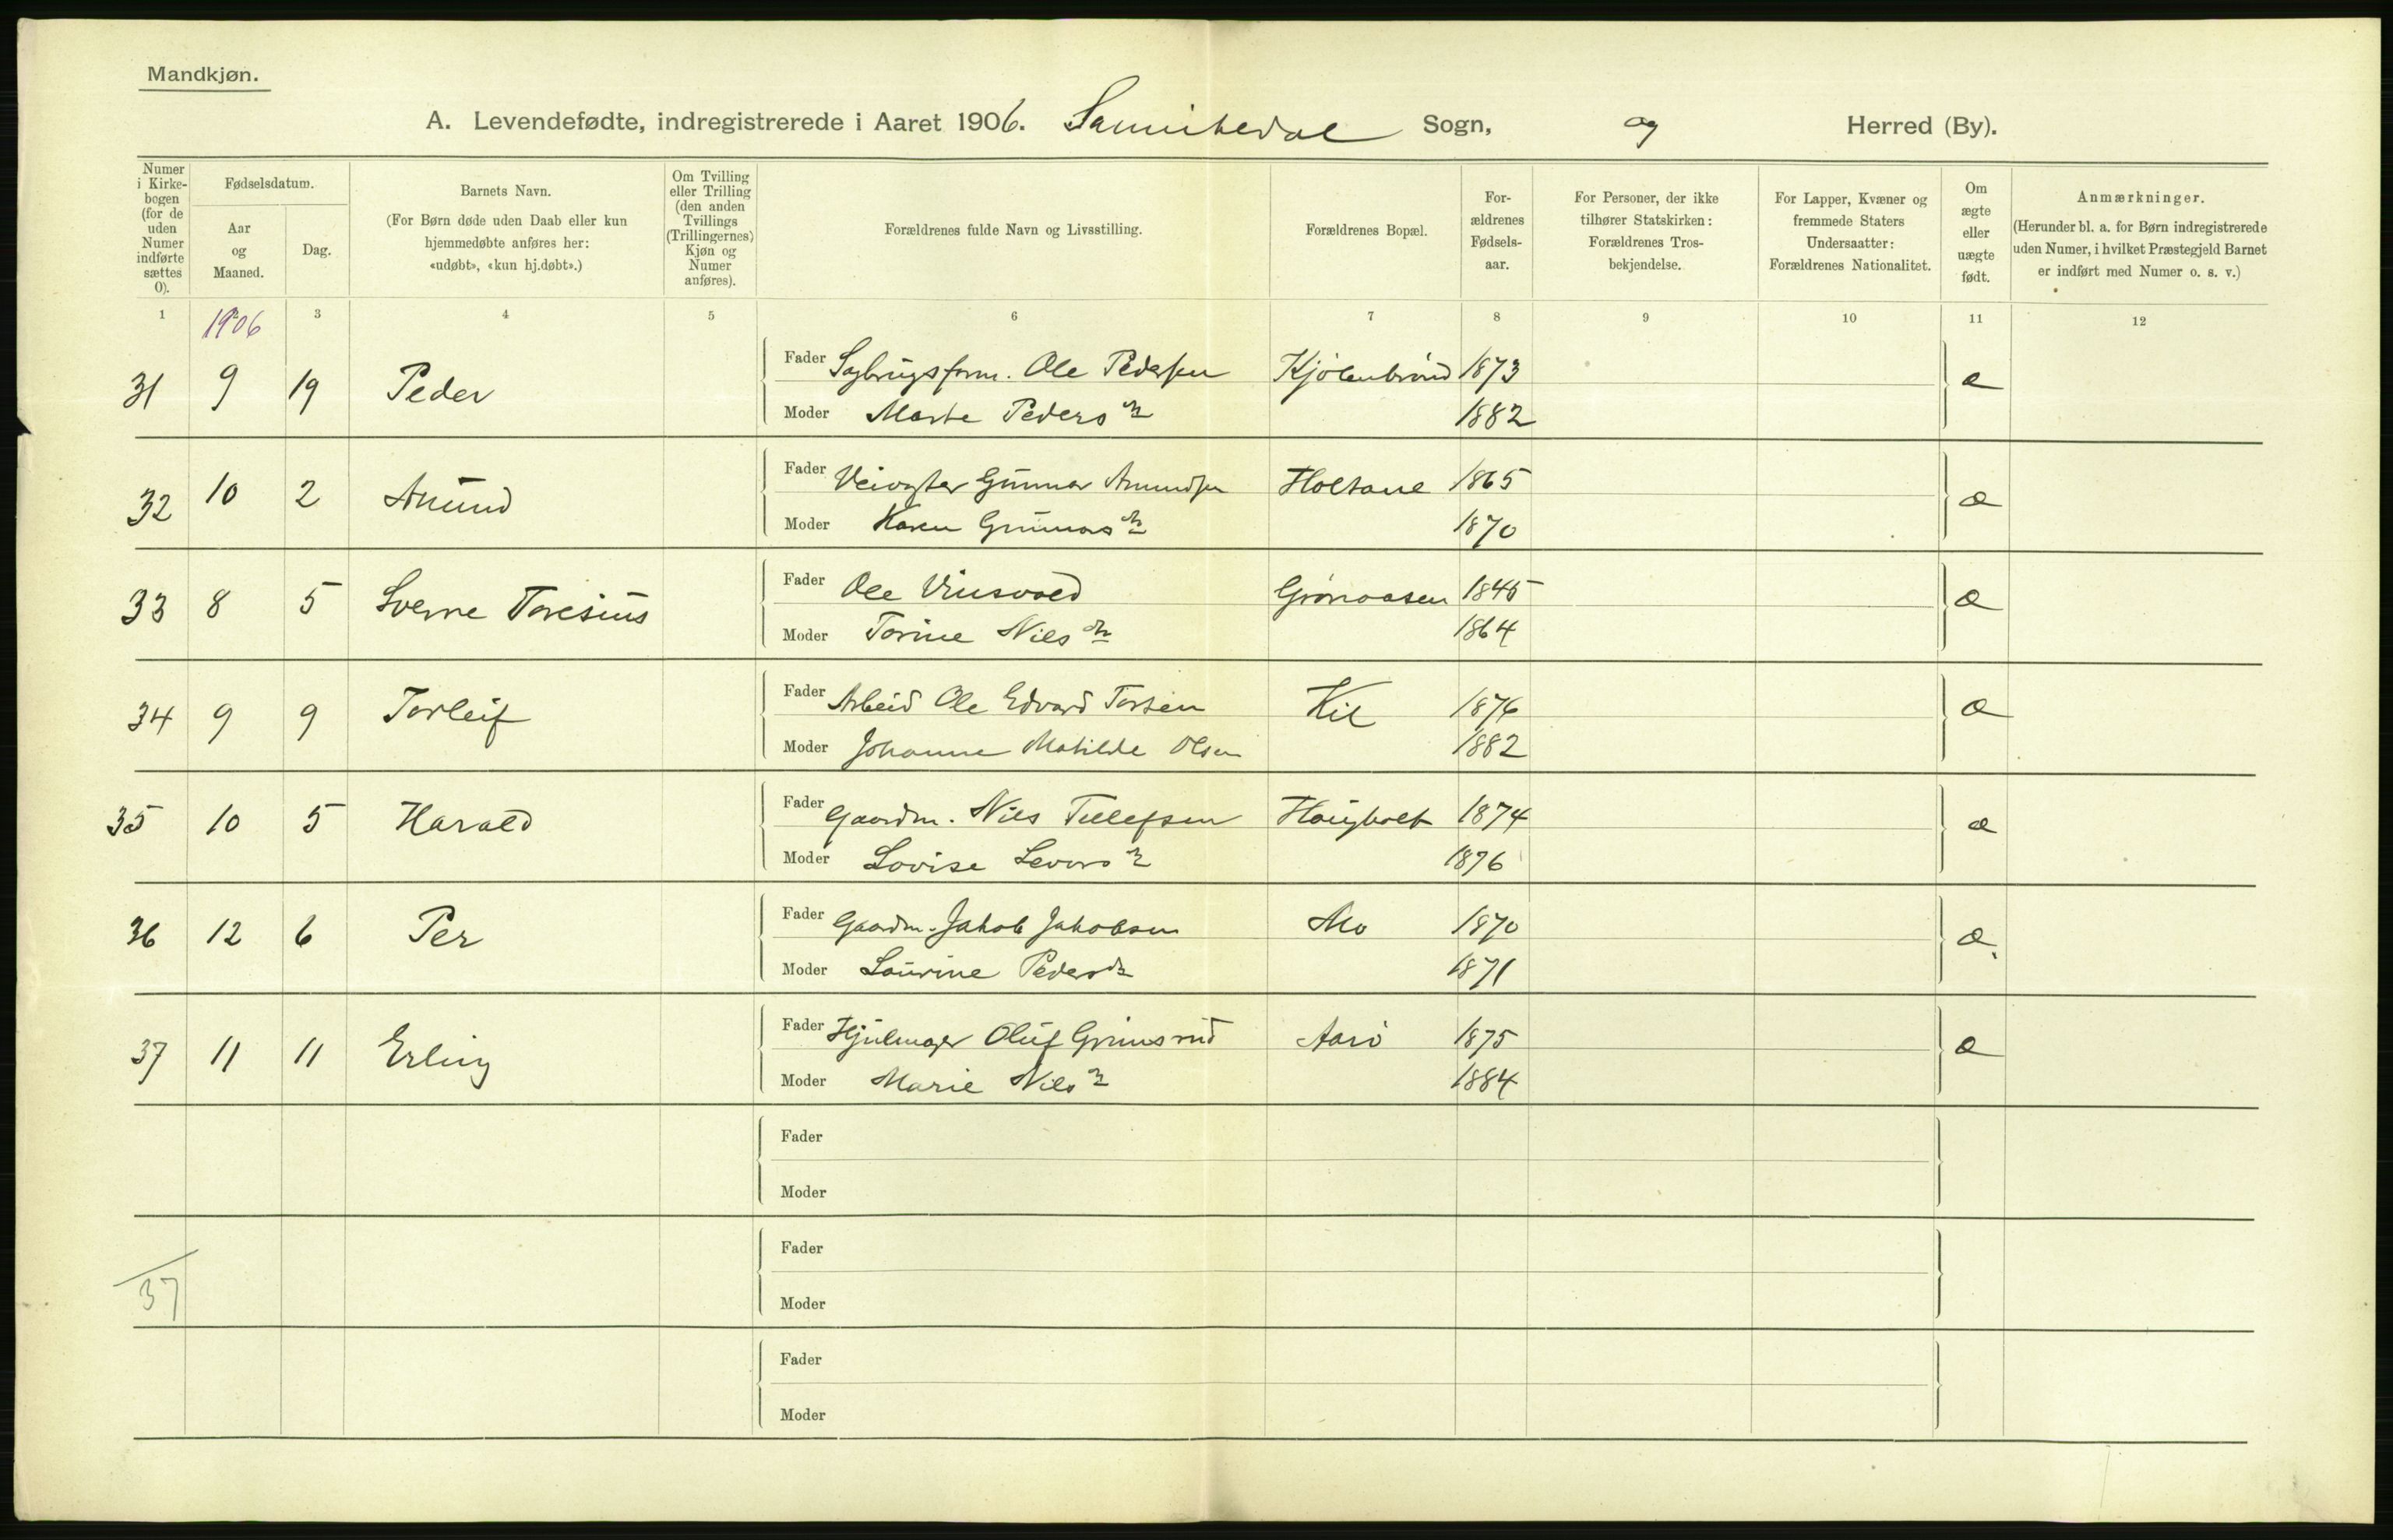 Mandkjøn.
A. Levendefødte, indregistrerede i Aaret 1906. Sannikedal Sogn, og Herred (By).
Numer i Kirke-bogen (for de uden Numer indførte sættes 0).
Fødselsdatum.
Aar og Maaned.
Dag.
Barnets Navn.
(For Børn døde uden Daab eller kun hjemmedøbte anføres her: «udøbt», «kun hj.døbt».)
Om Tvilling eller Trilling (den anden Tvillings (Trillingernes) Kjøn og Numer anføres).
Forældrenes fulde Navn og Livsstilling.
Forældrenes Bopæl.
For-ældrenes Fødsels-aar.
For Personer, der ikke tilhører Statskirken: Forældrenes Tros-bekjendelse.
For Lapper, Kvæner og fremmede Staters Undersaatter: Forældrenes Nationalitet.
Om ægte eller uægte født.
Anmærkninger.
(Herunder bl. a. for Børn indregistrerede uden Numer, i hvilket Præstegjeld Barnet er indført med Numer o. s. v.)
1 2 3 4 5 6 7 8 9 10 11 12
1906
31 9 19 Peder Fader Sagbrugsform. Ole Pedersen 1873 æ
Moder Marte Pedersdr 1882
32 10 2 Anund Fader Veivogter Gunnar Anundsen Holtane 1865 æ
Moder Karen Gunnarsdr 1870
33 8 5 Sverre Toresius Fader Ole Vinsvold Grønaasen 1845 æ
Moder Torine Nilsdr 1864
34 9 9 Torleif Fader Arbeid Ole Edvard Tostein Kil 1876 æ
Moder Johanne Matilde Olsen 1882
35 10 5 Harald Fader Gaardm. Nils Tellefsen Haugholt 1874 æ
Moder Lovise Levorsdr 1876
36 12 6 Per Fader Gaardm. Jakob Jakobsen Mo 1870 æ.
Moder Laurine Pedersdr 1871
37 11 11 Erling Fader Hjulmager Oluf Grimsrud Aarø 1875 æ
Moder Marie Nilsdr 1884
Fader
Moder
Fader
37
Moder
Fader
Moder